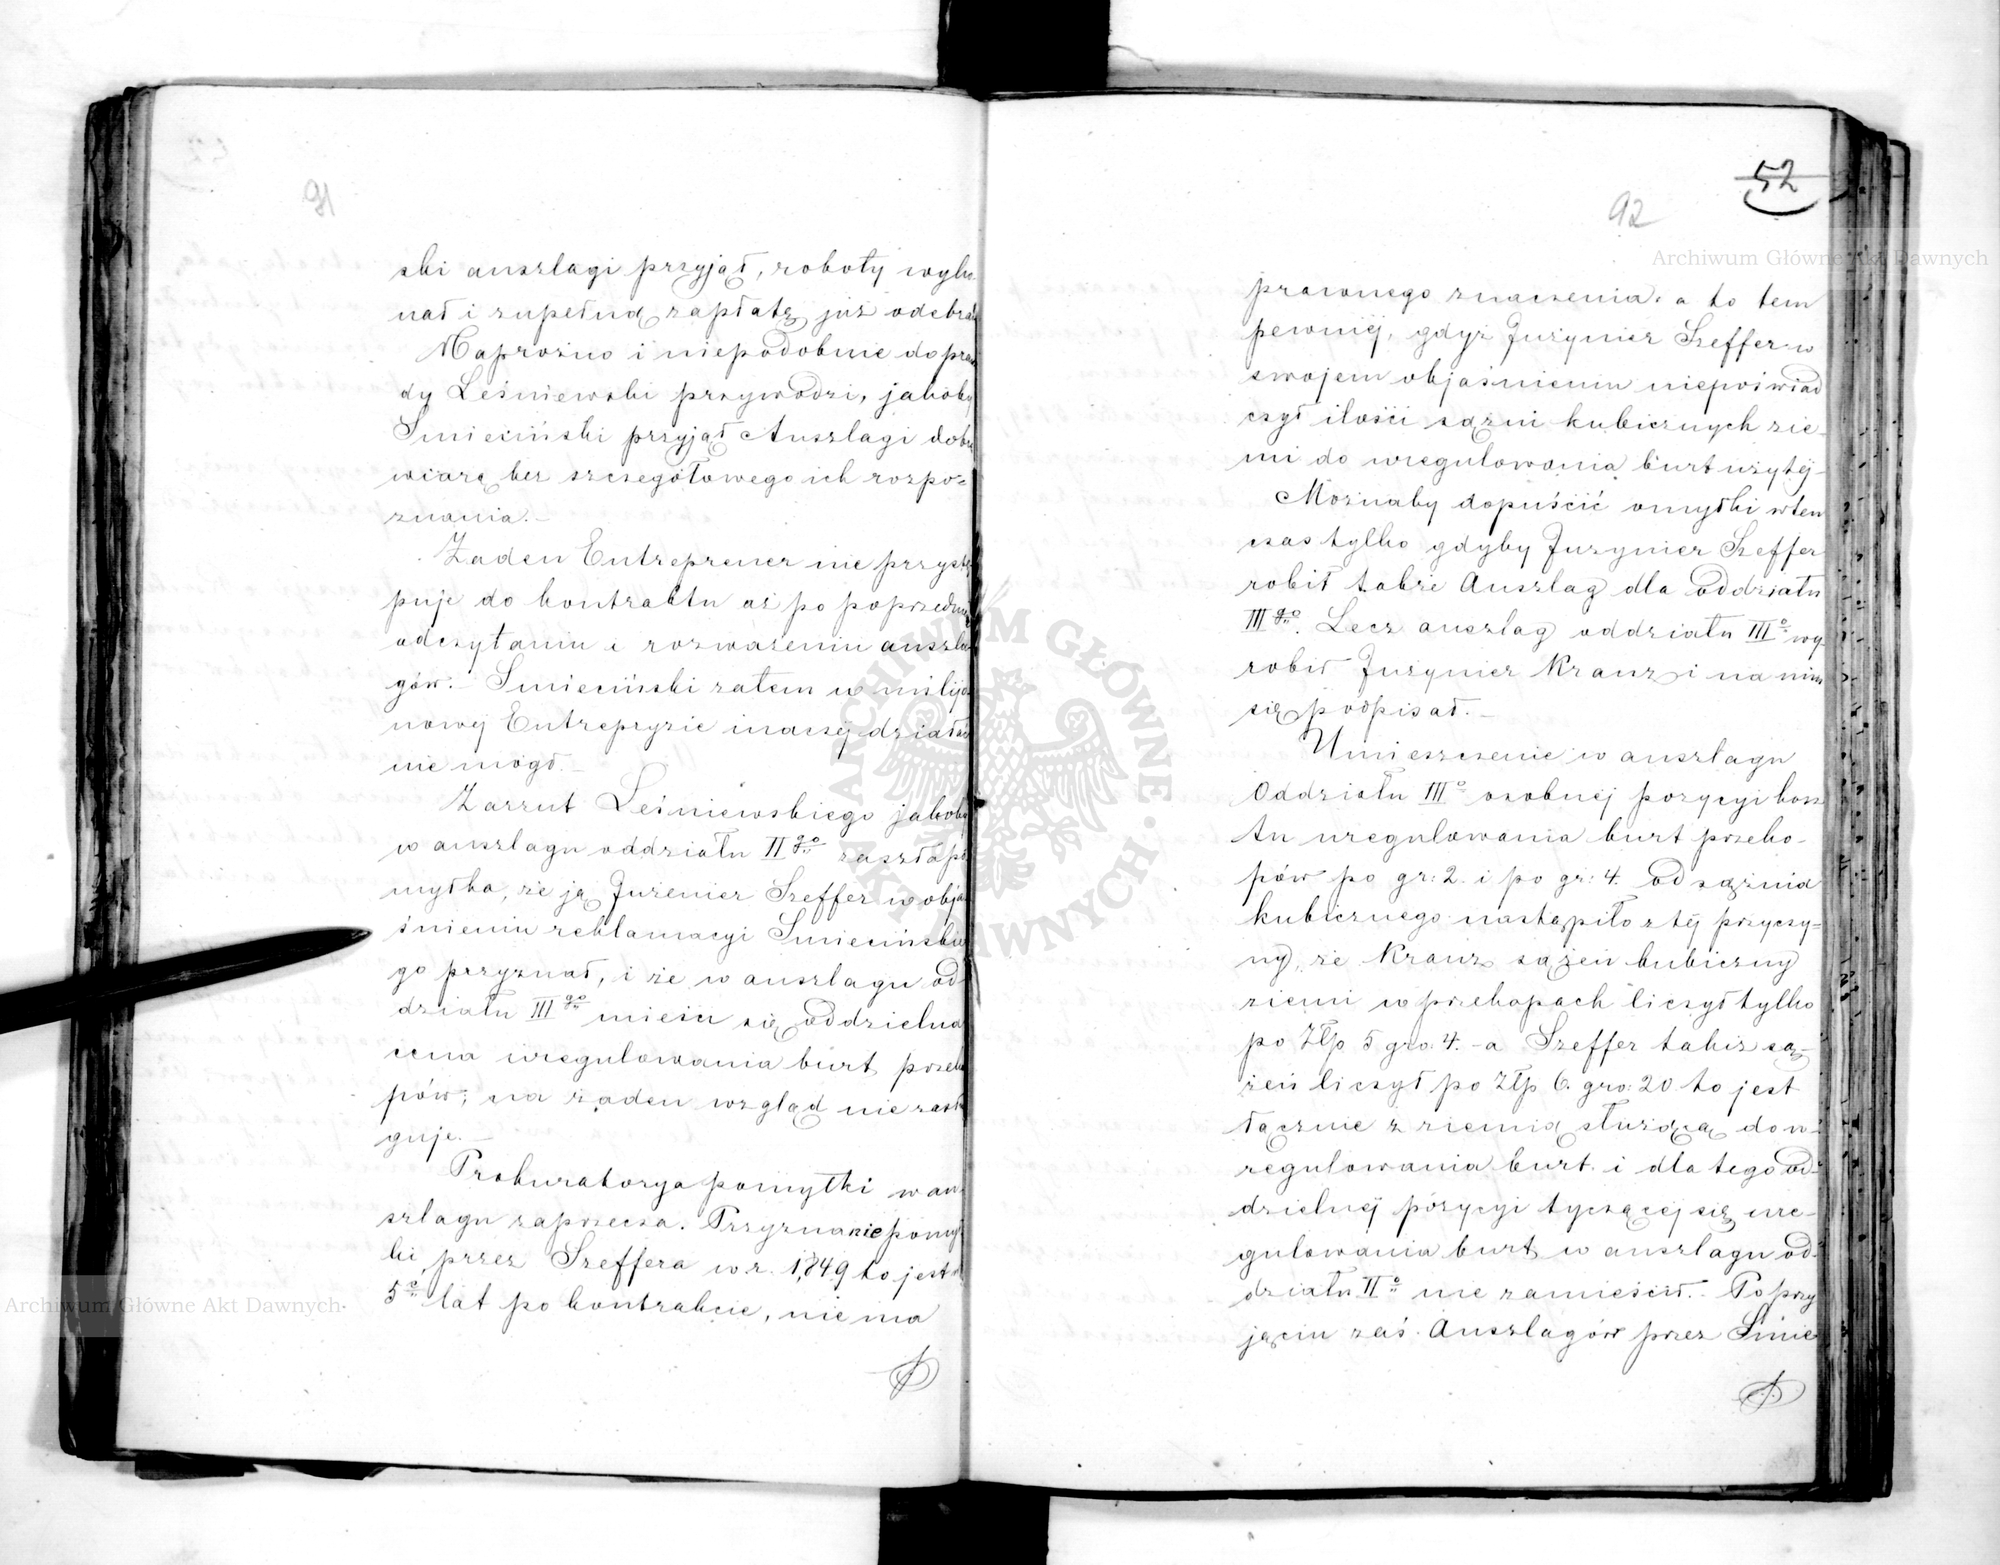 91
ski anszlagi przyjął, roboty wyko
nał i zupełną zapłatę już odebrał
Naprożno i niepodobnie do praw
dy Leśniewski przywodzi, jakoby
Smieciński przyjął Anszlagi dobrą
wiarą bez szczegółowego ich rozpo=
znania.–
Żaden Entreprener nie przystę
puje do kontraktu aż po poprzedniem
odczytaniu i rozważeniu anszla
gów.– Smieciński zatem w milijo
nowej Entrepryzie inaczéj działać
nie mógł.–
Zarzut Leśniewskiego jakoby
w anszlagu oddziału II go zaszła po
myłka, że ją Inżenier Szeffer w obja
śnieniu reklamacyi Smiecińskie
go przyznał, i że w anszlagu od
działu III go mieści się oddzielna
cena uregulowania burt przeko
pów; na żaden wzgląd nie zasłu
guje.–
Prokuratorya pomyłki w an
szlagu zaprzecza. Przyznanie pomył
ki, przez Szeffera w r. 1849 to jest w
5o lat po kontrakcie, nie ma
52
92
prawnego znaczenia, a to tem
pewniéj, gdyż Inżynier Szeffer w
swojem objaśnieniu niepoświad
czył ilości sążni kubicznych zie
mi do uregulowania burt użytéj–
Możnaby dopuścić omyłki wten
czas tylko gdyby Inżynier Szeffer
robił także Anszlag dla oddziału
III go. Lecz anszlag oddziału III o wy
robił Inżynier Kranz i na nim
się podpisał.–
Umieszczenie w anszlagu
Oddziału III o osobnej pozycyi kosz
tu uregulowania burt przeko-
pów po gr: 2. i po gr: 4. od sążnia
kubicznego nastąpiło z téj przyczy=
ny, że Kranz sążeń kubiczny
ziemi w przekopach liczył tylko
po Złp 5 gro: 4.– a Szeffer takiż są-
żeń liczył po Złp 6. gro: 20. to jest
łącznie z ziemią służącą do u-
regulowania burt. i dla tego od-
dzielnéj pozycyi tyczącéj się ure-
gulowania burt w anszlagu od-
działu II o nie zamieścił.– Po przy
jęciu zaś Anszlagów przez Smie
Archiwum Główne Akt Dawnych
Archiwum Główne Akt Dawnych
ARCHIWUM GŁÓWNE AKT DAWNYCH